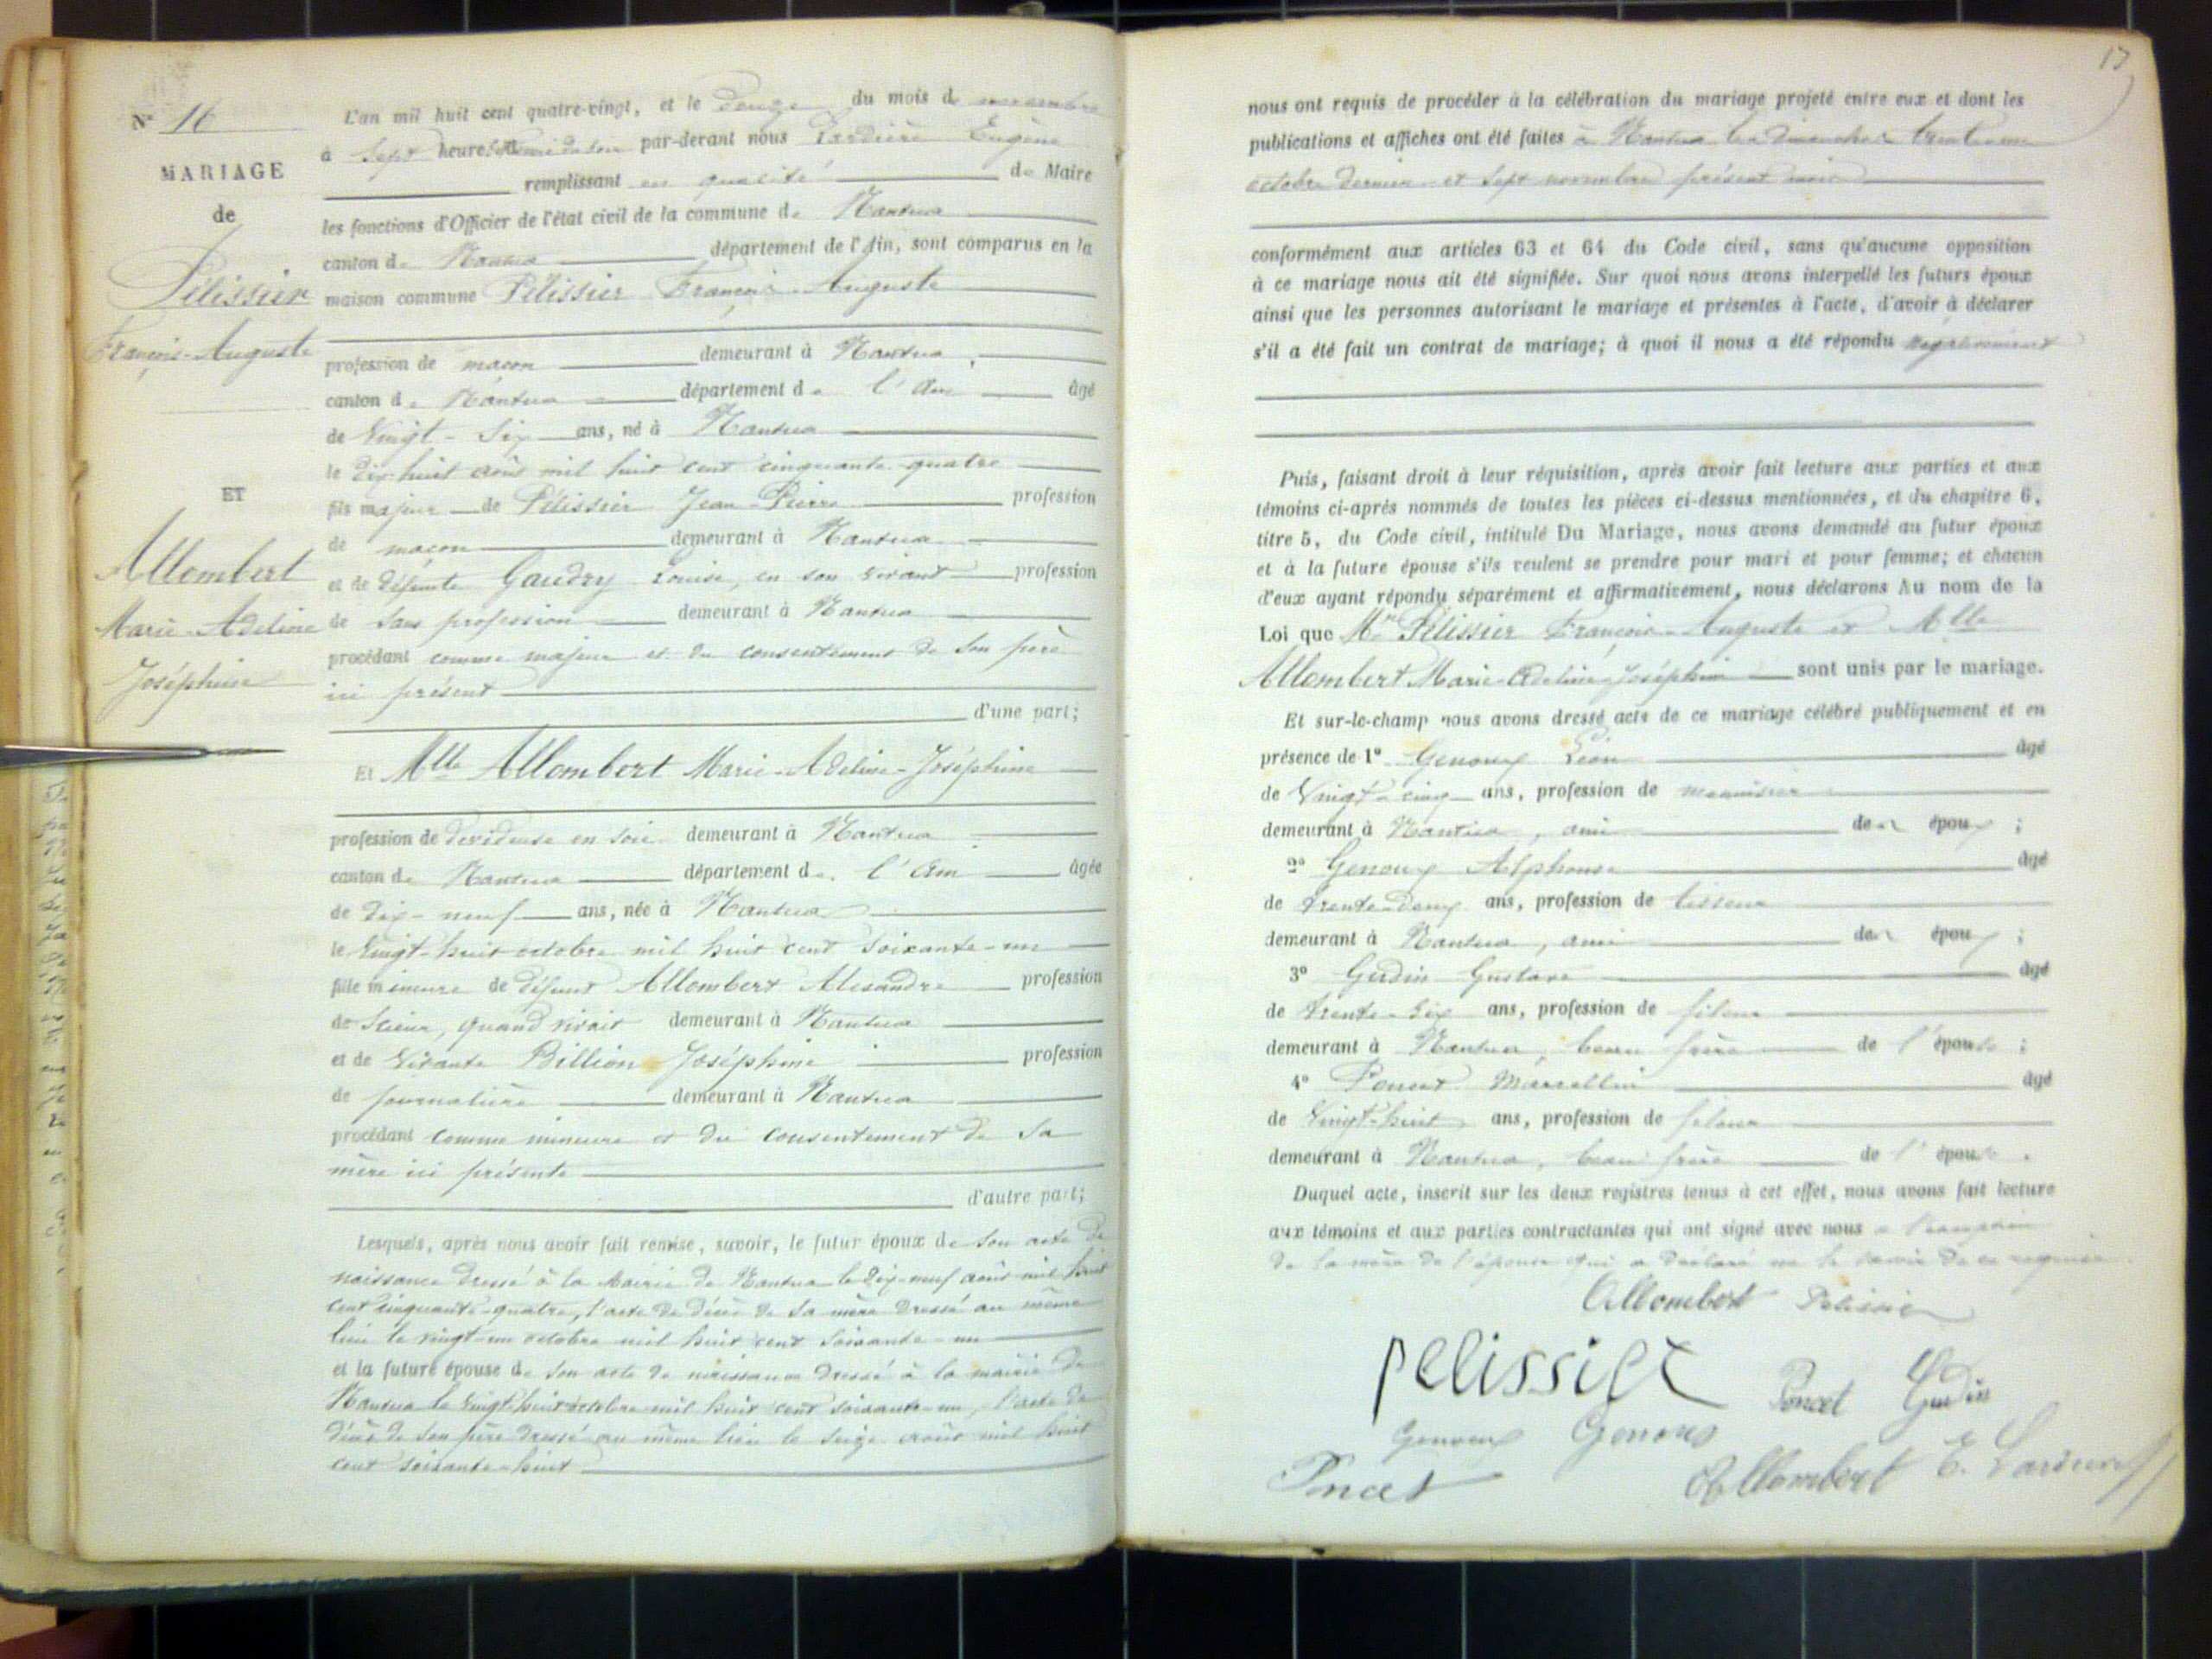 N° 16
MARIAGE
de
Pélissier
François-Auguste
ET
Allombert
Marie-Adeline
Joséphine
L'an mil huit cent quatre-vingt, et le Douze du mois de novembre
à Sept heures du par-devant nous Eugène
remplissant en qualité de Maire
les fonctions d'Officier de l'état civil de la commune de Nantua
canton de Nantua département de l'Ain, sont comparus en la
maison commune Pélissier François-Auguste
profession de maçon demeurant à Nantua
canton de Nantua département de l'Ain âgé
de Vingt-Six ans, né à Nantua
le Dix-huit août mil huit cent cinquante-quatre
fils majeur de Pélissier Jean-Pierre profession
de maçon demeurant à Nantua
et de défunte Gaudry Louise, en son vivant profession
de Sans profession demeurant à Nantua
procédant comme majeur et du consentement de Son père
ici présent
d'une part;
Et Mlle Allombert Marie-Adeline-Joséphine
profession de dévideuse en soie demeurant à Nantua
canton de Nantua département de l'Ain âgée
de Dix-neuf ans, née à Nantua
le Vingt-huit octobre mil huit cent Soixante-un
fille mineure de défunt Allombert Alexandre profession
de Scieur, quand vivait demeurant à Nantua
et de Vivante Billion Joséphine profession
de journalière demeurant à Nantua
procédant comme mineure et du consentement de Sa
mère ici présente
d'autre part;
Lesquels, après nous avoir fait remise, savoir, le futur époux de Son acte de
naissance dressé à la Mairie de Nantua le Dix-neuf août mil huit
cent cinquante-quatre, l'acte de décès de Sa mère dressé au même
lieu le vingt-un octobre mil huit cent Soixante-un
et la future épouse de Son acte de naissance dressé à la mairie de
Nantua le Vingt-huit octobre mil huit cent soixante-un, l'acte de
décès de Son père dressé au même lieu le Seize août mil huit
cent soixante-huit
17
nous ont requis de procéder à la célébration du mariage projeté entre eux et dont les
publications et affiches ont été faites à Nantua les Dimanches trente-un
octobre dernier et Sept novembre présent mois
conformément aux articles 63 et 64 du Code civil, sans qu'aucune opposition
à ce mariage nous ait été signifiée. Sur quoi nous avons interpellé les futurs époux
ainsi que les personnes autorisant le mariage et présentes à l'acte, d'avoir à déclarer
s'il a été fait un contrat de mariage; à quoi il nous a été répondu négativement
Puis, faisant droit à leur réquisition, après avoir fait lecture aux parties et aux
témoins ci-après nommés de toutes les pièces ci-dessus mentionnées, et du chapitre 6,
titre 5, du Code civil, intitulé Du Mariage, nous avons demandé au futur époux
et à la future épouse s'ils veulent se prendre pour mari et pour femme; et chacun
d'eux ayant répondu séparément et affirmativement, nous déclarons Au nom de la
Loi que Mr Pélissier François-Auguste et Mlle
Allombert Marie-Adeline-Joséphine sont unis par le mariage.
Et sur-le-champ nous avons dressé acte de ce mariage célébré publiquement et en
présence de 1° Genoux Léon âgé
de Vingt-cinq ans, profession de menuisier
demeurant à Nantua, ami des époux;
2° Genoux Alphonse âgé
de Trente-deux ans, profession de tisseur
demeurant à Nantua, ami des époux;
3° Gudin Gustave âgé
de Trente-six ans, profession de fileur
demeurant à Nantua, beau frère de l'épouse;
4° Poncet Marcellin âgé
de Vingt-huit ans, profession de fileur
demeurant à Nantua, beau frère de l'épouse.
Duquel acte, inscrit sur les deux registres tenus à cet effet, nous avons fait lecture
aux témoins et aux parties contractantes qui ont signé avec nous à l'exception
de la mère de l'épouse qui a déclaré ne le savoir de ce requise
Allombert Pelissier
pelissier Poncet Gudin
Genoux Genoux
Poncet Allombert